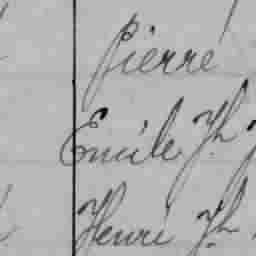 Pierre
Emile Jh
Henri Jh